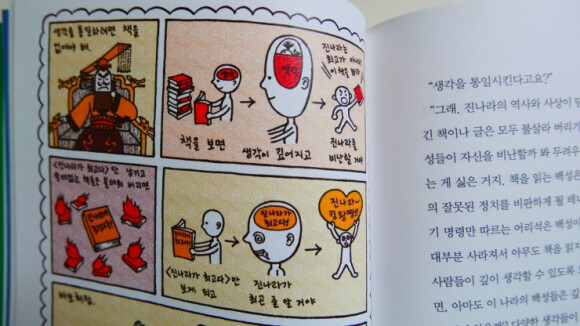 생각을 통일하려면 책을
없애야 해.
책을 보면
생각
생각이 깊어지고
진나라는
최고가 아니야
이 책을 봐라
진나라를
비난할 게야
<진나라가 최고다>만 남기고
쓸데없는 책들은 불태워 버리면
진나라가
최고다!
<진나라가 최고다>만
보게 되고
진나라가
최고다!
진나라가
최곤 줄 알 거야
진나라~
킹왕짱!!
바보처럼.
“생각을 통일시킨다고요?”
“그래. 진나라의 역사와 사상이 담
긴 책이나 글은 모두 불살라 버리기
성들이 자신을 비난할까 봐 두려우
는 게 싫은 거지. 책을 읽는 백성은
의 잘못된 정치를 비판하게 될 테니
기 명령만 따르는 어리석은 백성이
대부분 사라져서 아무도 책을 읽지
사람들이 깊이 생각할 수 있도록
면, 아마도 이 나라의 백성들은 깊
다양한 생각들이